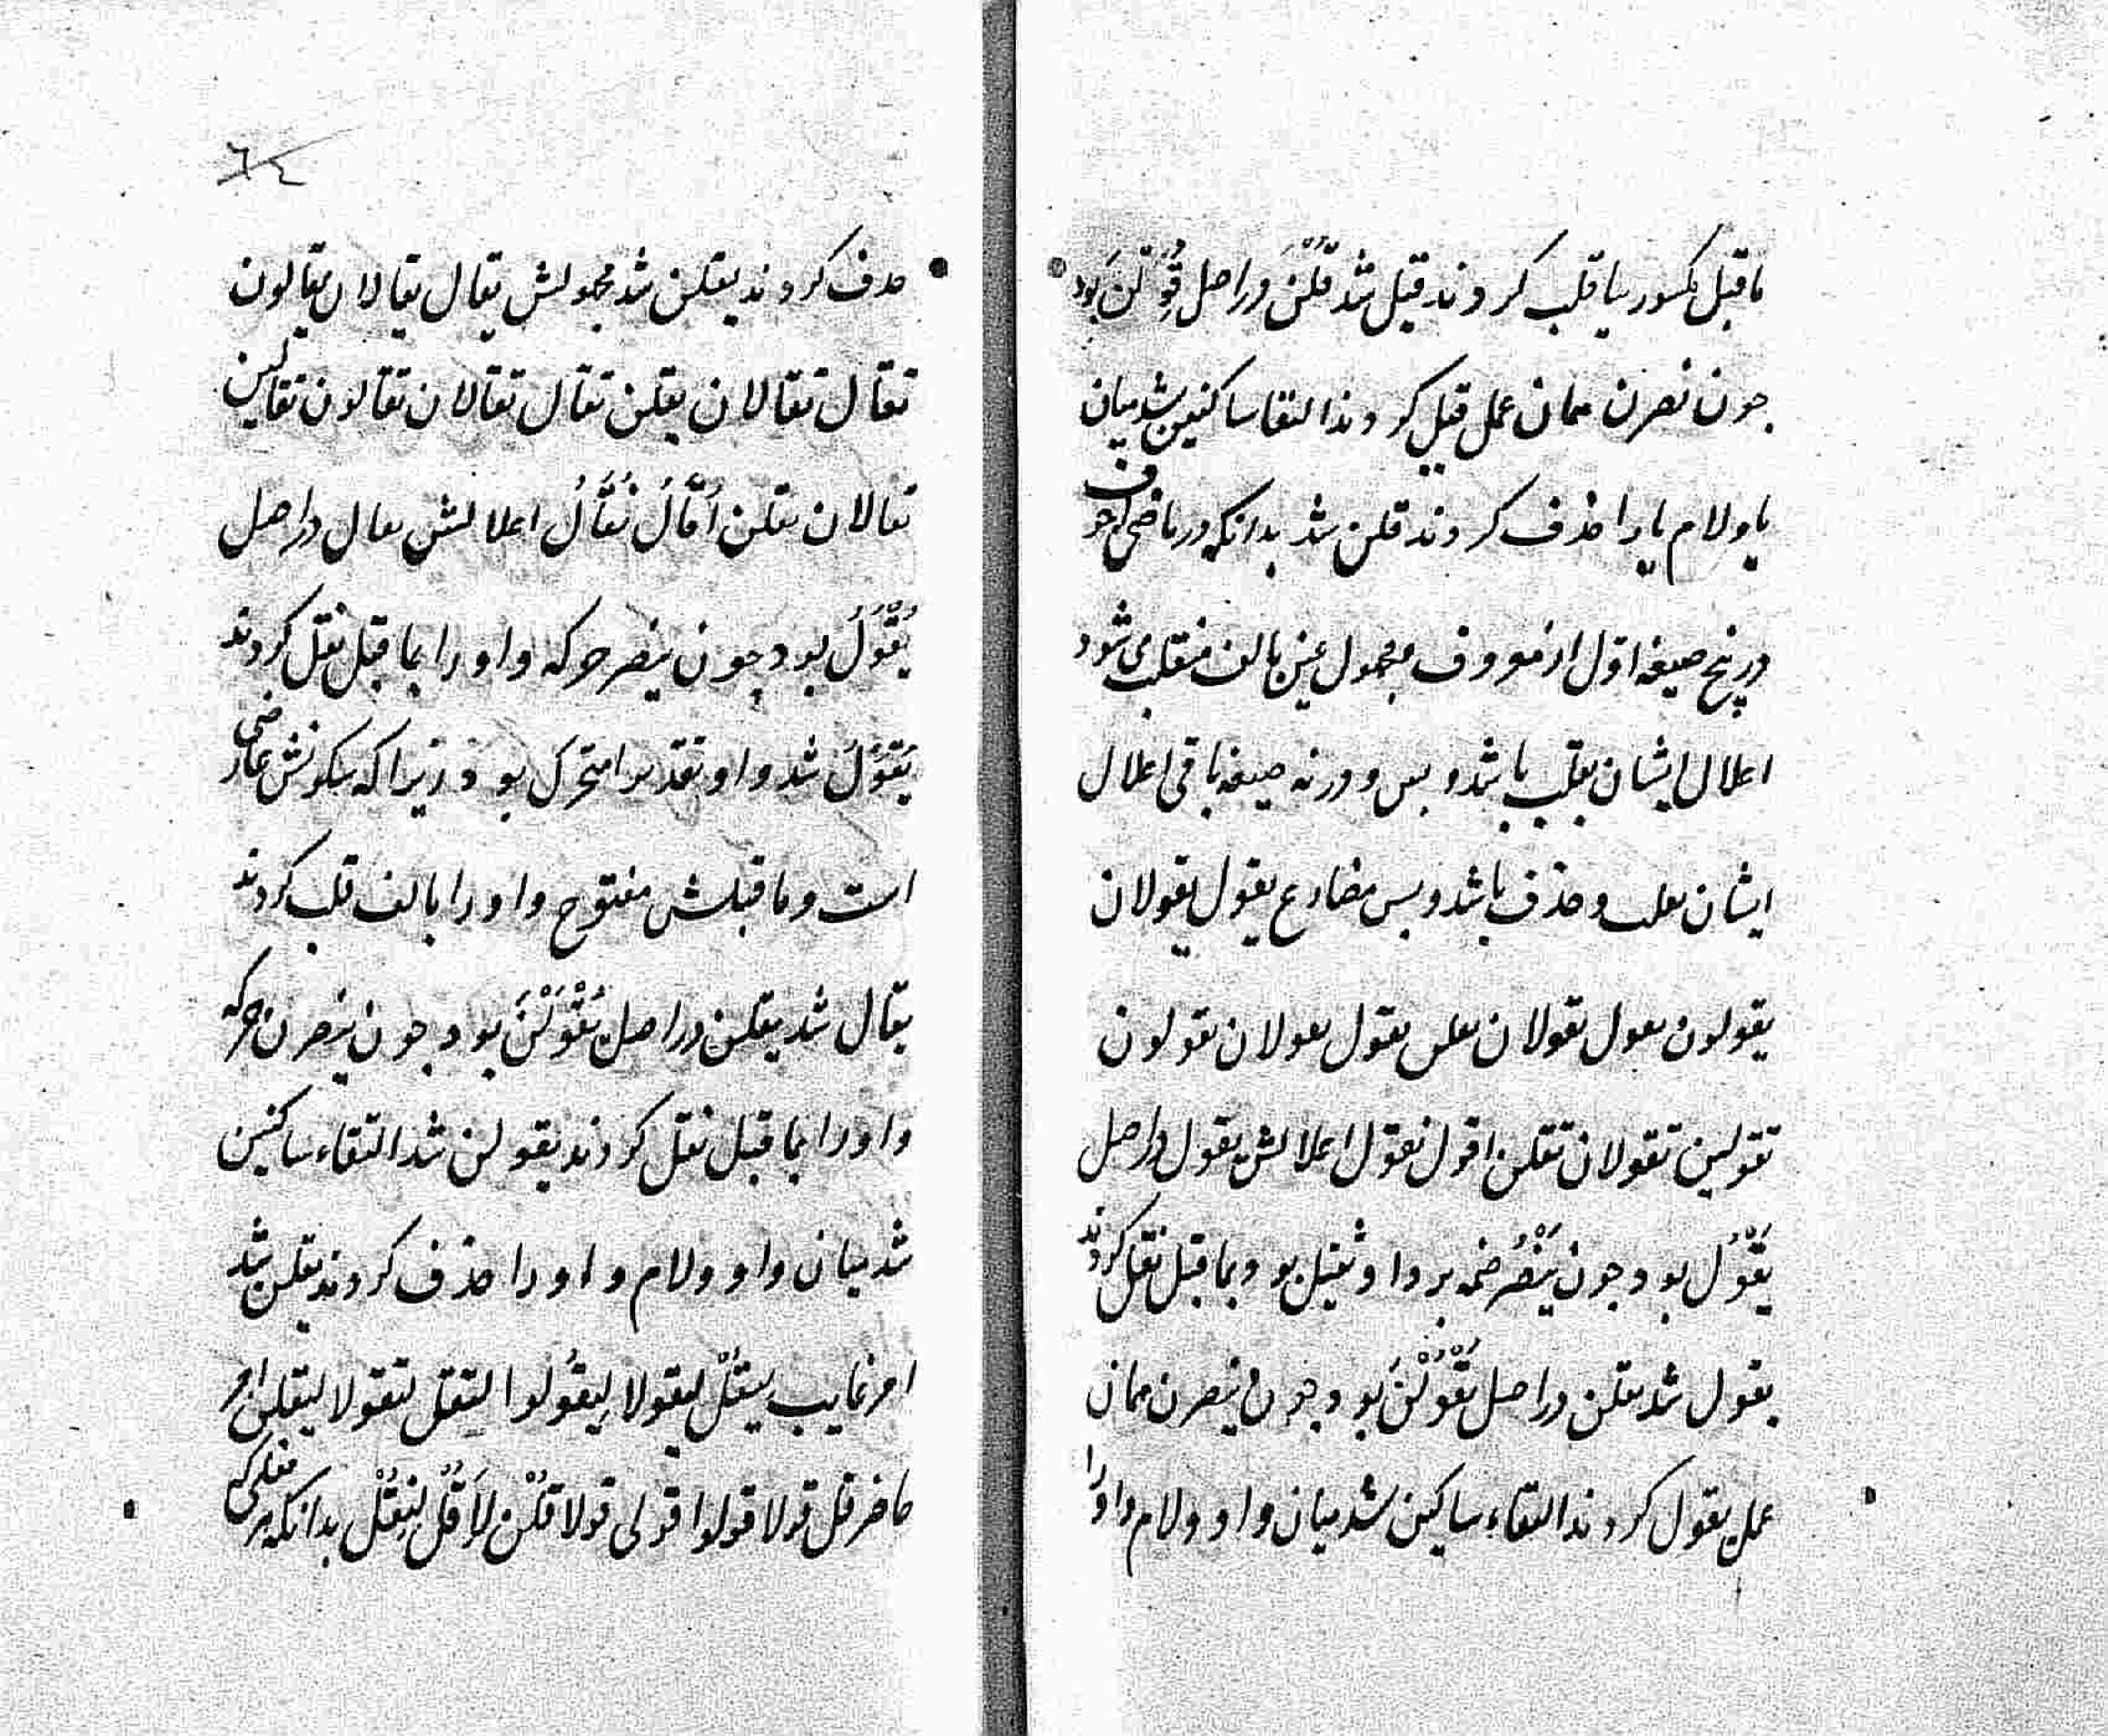 ماقبل مکسور بیا قلب کردند قیل شد قُلْنَ دراصل قُوِلْنَ بود
جون نصرن همان عمل قیل کردند التقا ساکنین شد میان
یا و لام یا را حذف کردند قلن شد بدانکه در ماضی اجوف
در پنج صیغه اول از معروف و مجهول عین بالف منقلب می شود
اعلال ایشان بقلب باشد و بس و در نه صیغه باقی اعلال
ایشان بقلب و حذف باشد و بس مضارع یقول یقولان
یقولون تقول تقولان یقلن تقول تقولان تقولون
تقولین تقولان تقلن اقول نقول اعلالش یقول دراصل
یَقْوُلُ بود جون یَنْصُرُ ضمه بر واو ثقیل بود بما قبل نقل کردند
یقول شد یقلن دراصل یَقْوُلْنَ بود جون ینصرن همان
عمل یقول کردند التقاء ساکنین شد میان واو و لام واو را
٦٤
حذف کردند یقلن شد مجهولش یقال یقالان یقالون
تقال تقالان یقلن تقال تقالان تقالون تقالین
تقالان تقلن اُقَالُ نُقَالُ اعلالش یقال دراصل
یُقْوَلُ بود جون ینصر حرکه واو را بما قبل نقل کردند
یُقَوْلُ شد واو تقدیرا متحرک بود زیرا که سکونش عارضی
است و ماقبلش مفتوح واو را بالف قلب کردند
یقال شد یقلن دراصل یُقْوَلْنَ بود جون ینصرن حرکه
واو را بما قبل نقل کردند یقولن شد التقاء ساکنین
شد میان واو و لام واو را حذف کردند یقلن شد
امر غایب لیقُلْ لیقولا لیقُولوا لتقل لتقولا لیقلن امر
حاضر قل قولا قولوا قولی قولا قُلْن لِاَقُلْ لِنقُلْ بدانکه هر